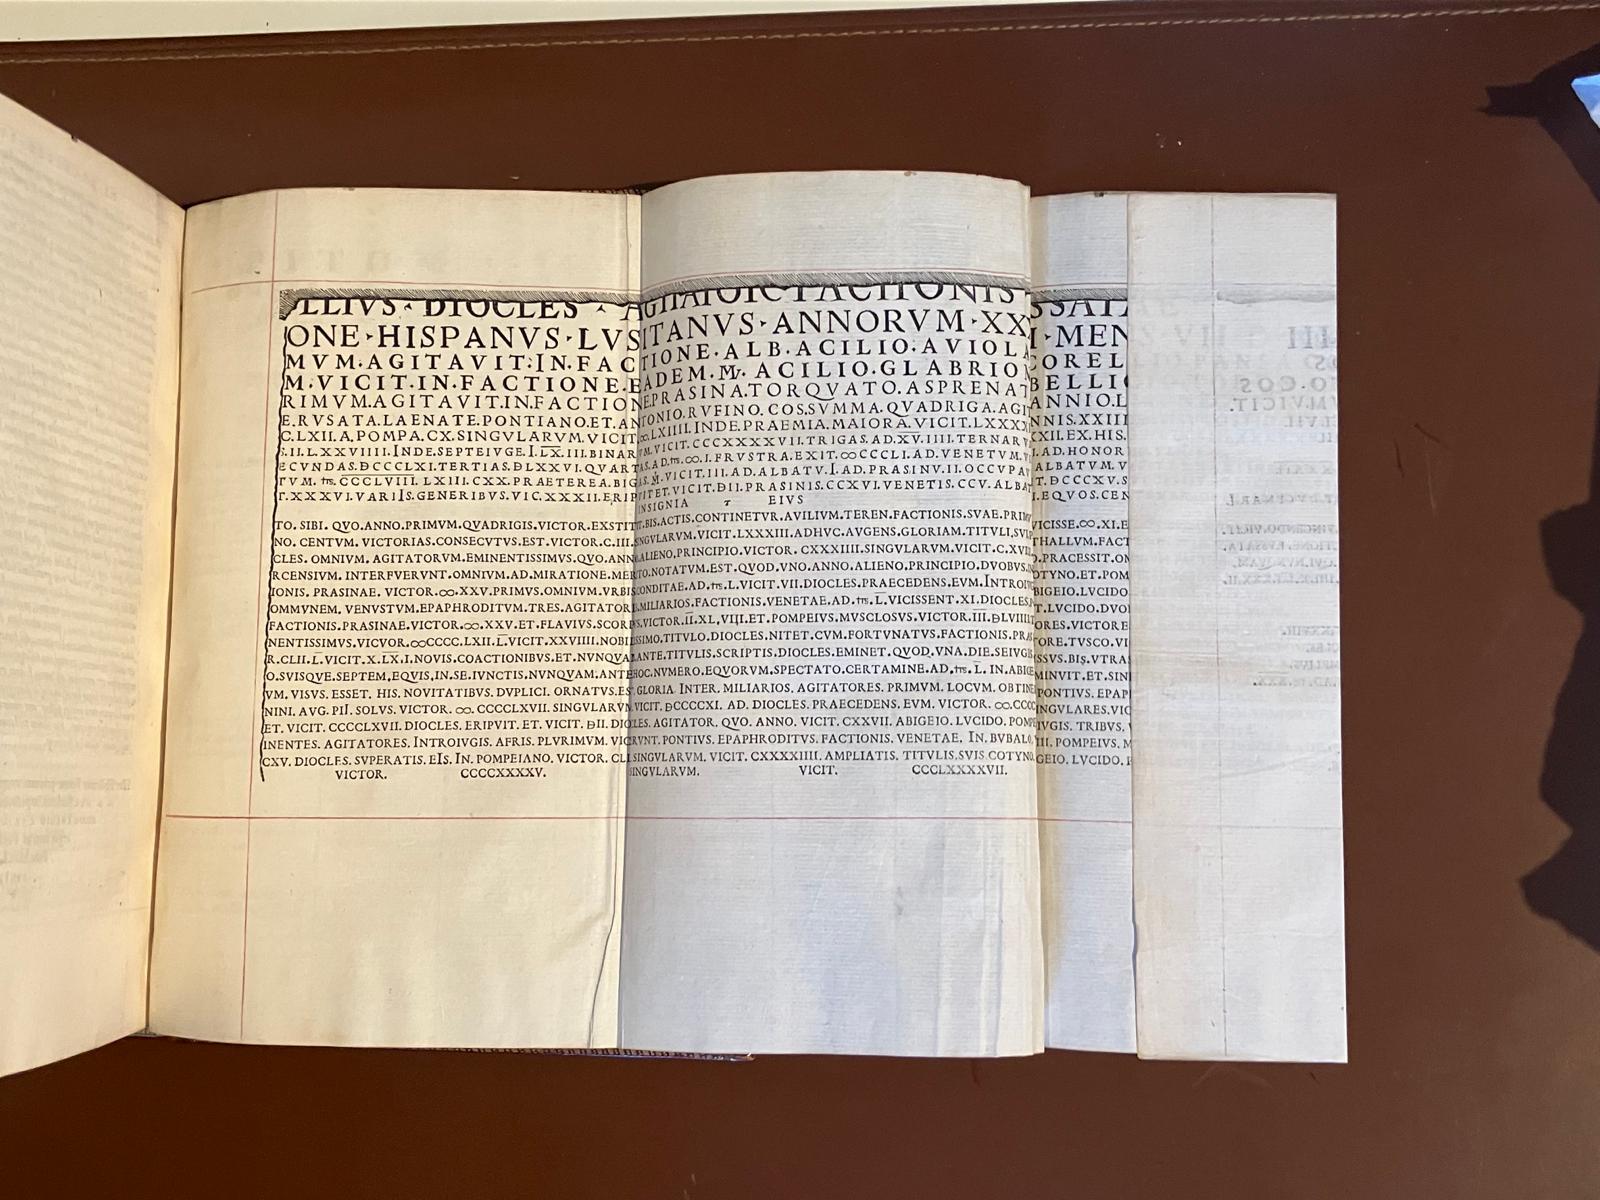 DIOCLES
ONE · HISPANVS · LVSITANVS · ANNORVM · XX MEN
MVM.AGITAVIT.IN.FACTIONE.ALB.ACILIO.AVIOLA COREL
M.VICIT.IN.FACTIONE.EADEM. ACILIO.GLABRIO BELLI
RIMVM.AGITAVIT.IN.FACTIONE.PRASINA.TORQVATO.ASPRENAT ANNIO.L
E.RVSATA.LAENATE.PONTIANO.ET.ANTONIO.RVFINO.COS.SVMMA.QVADRIGA.AGIT NNIS.XXIII
C.LXII.A.POMPA.CX.SINGVLARVM.VICIT.∞.LXIIII.INDE.PRAEMIA.MAIORA.VICIT.LXXXX XXII.EX.HIS.
S.II.LXXVIIII.INDE.SEPTEIVGE.I.LX.III.BINARVM.VICIT.CCCXXXXVII.TRIGAS.AD.XV.IIII.TERNARV I.AD.HONOR
ECVNDAS.ÐCCCLXI.TERTIAS.ÐLXXVI.QVARTAS.AD.∞.I.FRVSTRA.EXIT.∞CCCLI.AD.VENETVM.V ALBATVM.V
TVM. CCCLVIII. LXIII.CXX.PRAETEREA.BIGAS.M.VICIT.III.AD.ALBATV.I.AD.PRASINV.II.OCCVPAV T.ÐCCCXV.S
T.XXXVI.VARIIS.GENERIBVS.VIC.XXXII.ERIPVITET.VICIT.ÐII.PRASINIS.CCXVI.VENETIS.CCV.ALBAT I.EQVOS.CEN
INSIGNIA EIVS
TO. SIBI. QVO.ANNO.PRIMVM.QVADRIGIS.VICTOR.EXSTITIT.BIS.ACTIS.CONTINETVR.AVILIVM.TEREN.FACTIONIS.SVAE.PRIM VICISSE.∞.XI.E
NO. CENTVM. VICTORIAS.CONSECVTVS.EST.VICTOR.C.III.SINGVLARVM.VICIT.LXXXIII.ADHVC.AVGENS.GLORIAM.TITVLI,SVI THALLVM.FACT
CLES. OMNIVM. AGITATORVM.EMINENTISSIMVS.QVO.ANNO.ALIENO.PRINCIPIO.VICTOR. CXXXIIII.SINGVLARVM.VICIT.C.XVII PRACESSIT.ON
RCENSIVM. INTERFVERVNT.OMNIVM.AD.MIRATIONE.MERITO.NOTATVM.EST.QVOD.VNO.ANNO.ALIENO.PRINCIPIO.DVOBVS.IN OTYNO.ET.POM
IONIS. PRASINAE. VICTOR.∞.XXV.PRIMVS.OMNIVM.VRBIS.CONDITAE.AD. L.VICIT.VII.DIOCLES.PRAECEDENS.EVM.INTROIVG BIGEIO.LVCIDO
OMMVNEM. VENVSTVM.EPAPHRODITVM.TRES.AGITATORES.MILIARIOS.FACTIONIS.VENETAE.AD. L.VICISSENT.XI.DIOCLES. T.LVCIDO.DVO
FACTIONIS.PRASINAE.VICTOR.∞.XXV.ET.FLAVIVS.SCORPVS.VICTOR.II.XL,VIII.ET.POMPEIVS.MVSCLOSVS.VICTOR.III.ÐLVIIII ORES.VICTORE
NENTISSIMVS.VICVOR.∞CCCC.LXII.L.VICIT.XXVIIII.NOBILISSIMO.TITVLO.DIOCLES.NITET.CVM.FORTVNATVS.FACTIONIS.PRAS ORE.TVSCO.VI
R.CLII.L.VICIT.X.LX.I.NOVIS.COACTIONIBVS.ET.NVNQVAM.ANTE.TITVLIS.SCRIPTIS.DIOCLES.EMINET.QVOD.VNA.DIE.SEIVGIS SSVS.BIS.VTRA
O.SVISQVE.SEPTEM.EQVIS.IN.SE.IVNCTIS.NVNQVAM.ANTEHOC.NVMERO.EQVORVM.SPECTATO.CERTAMINE.AD. L.IN.ABIGE MINVIT.ET.SIN
VM. VISVS. ESSET. HIS. NOVITATIBVS. DVPLICI. ORNATVS.EST.GLORIA. INTER. MILIARIOS. AGITATORES. PRIMVM. LOCVM. OBTINE PONTIVS. EPAP
NINI. AVG. PII. SOLVS. VICTOR. ∞. CCCCLXVII. SINGVLARVM.VICIT. ÐCCCCXI. AD. DIOCLES. PRAECEDENS. EVM. VICTOR. ∞.CCCC INGVLARES.VIC
ET. VICIT. CCCCLXVII. DIOCLES. ERIPVIT. ET. VICIT. ÐII. DIOCLES. AGITATOR. QVO. ANNO. VICIT. CXXVII. ABIGEIO. LVCIDO. POMPE IVGIS. TRIBVS.
INENTES. AGITATORES. INTROIVGIS. AFRIS. PLVRIMVM. VICERVNT. PONTIVS. EPAPHRODITVS. FACTIONIS. VENETAE. IN. BVBALO. III. POMPEIVS. M
CXV. DIOCLES. SVPERATIS. EIS. IN. POMPEIANO. VICTOR. CLII.SINGVLARVM. VICIT. CXXXXIIII. AMPLIATIS. TITVLIS.SVIS COTYNO. GEIO. LVCIDO.
VICTOR. CCCCXXXXV. SINGVLARVM. VICIT. CCCLXXXXVII.